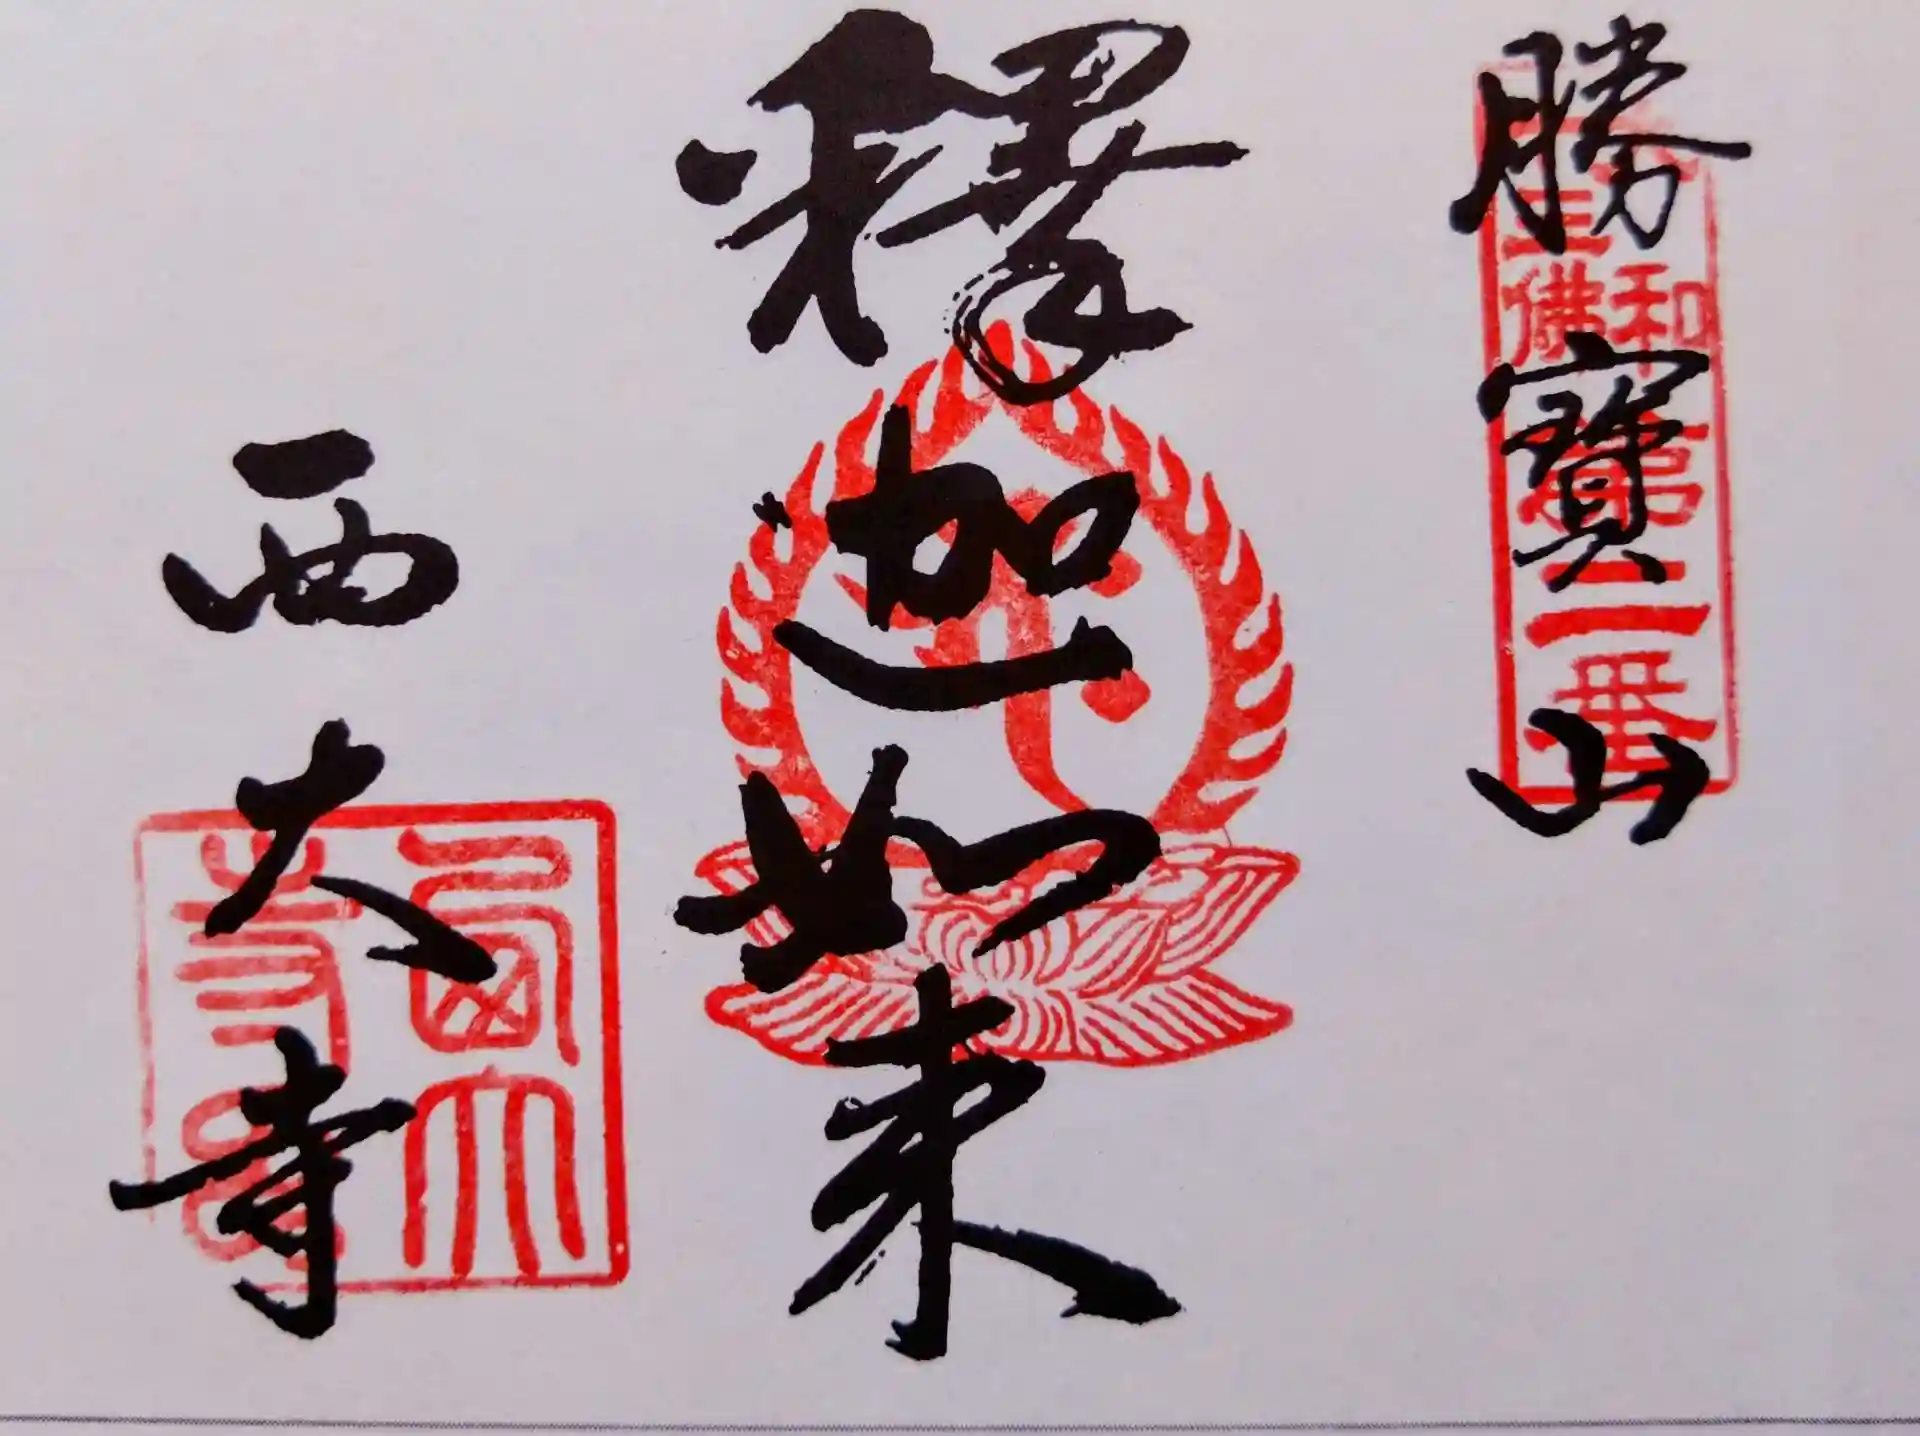 勝寶山
大和
十三佛
第二番
釋迦如来
西大寺